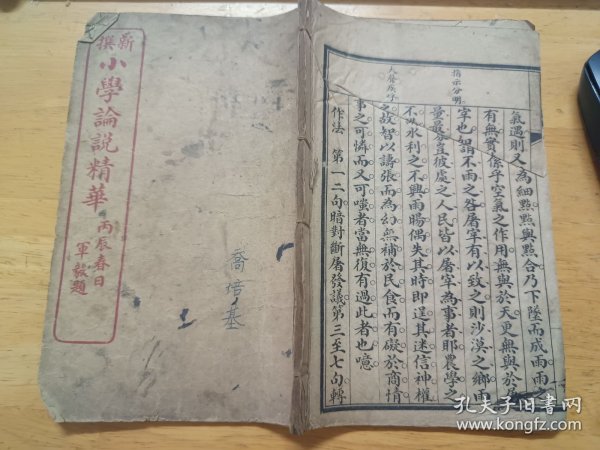 新撰
小學論說精華
丙辰春日
軍毅題
喬培基
指示分明
氣遇則又為細點點與點合乃下墜而成雨雨之
有無實係乎空氣之作用無與於天更無與於屠
宰也謂不雨之咎屠宰有以致之則沙漠之鄉雨
量最少豈彼處之人民皆以屠宰為事者耶農學之
不講水利之不興雨暘偶失其時即逞其迷信神權
之故智以譸張而為幻無補於民食而有礙於商情
事之可憐而又可嗤者當無復有過此者也噫
作法 第一二句暗對斷屠發議第三至七句轉
孔夫子旧书网
www.kongfz.com